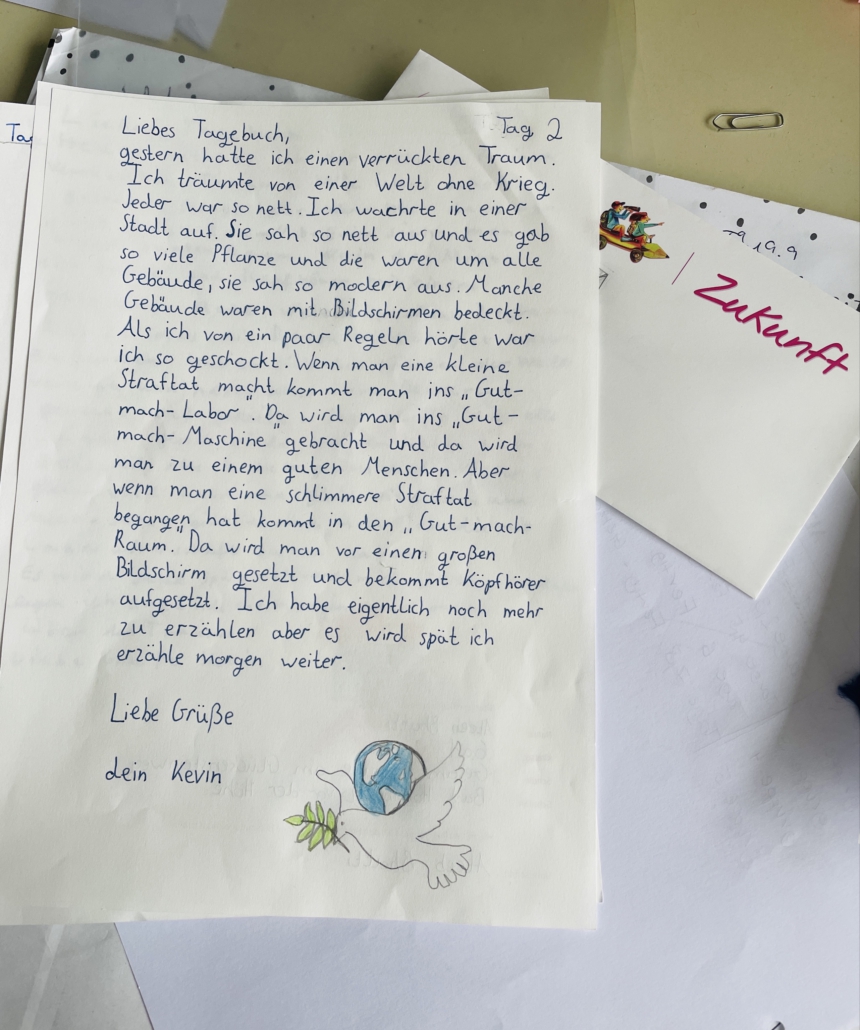 Tag 2
Liebes Tagebuch,
gestern hatte ich einen verrückten Traum.
Ich träumte von einer Welt ohne Krieg.
Jeder war so nett. Ich wachrte in einer
Stadt auf. Sie sah so nett aus und es gab
so viele Pflanze und die waren um alle
Gebäude, sie sah so modern aus. Manche
Gebäude waren mit Bildschirmen bedeckt.
Als ich von ein paar Regeln hörte war
ich so geschockt. Wenn man eine kleine
Straftat macht kommt man ins „Gut-
mach-Labor". Da wird man ins „Gut-
mach-Maschine" gebracht und da wird
man zu einem guten Menschen. Aber
wenn man eine schlimmere Straftat
begangen hat kommt in den „Gut-mach-
Raum." Da wird man vor einen großen
Bildschirm gesetzt und bekommt Köpfhörer
aufgesetzt. Ich habe eigentlich noch mehr
zu erzählen aber es wird spät ich
erzähle morgen weiter.
Liebe Grüße
dein Kevin
Zukunft